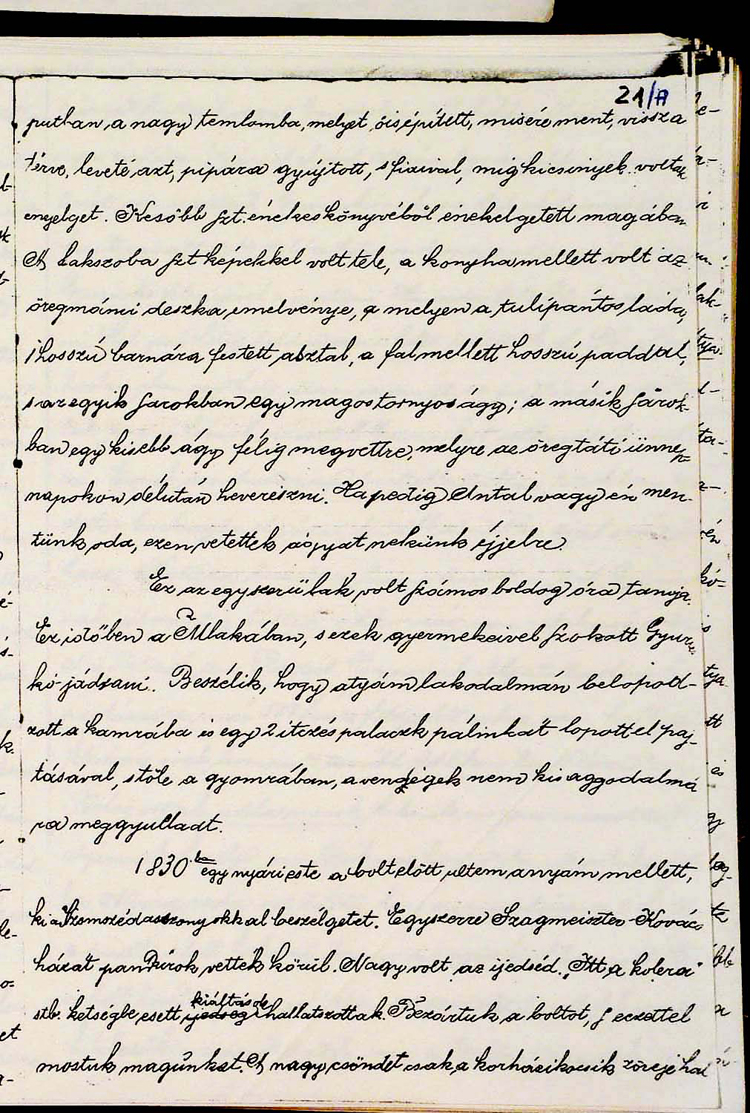 21/A
putban, a nagy temlomba, melyet ő is épített, misére ment, vissza
térve, leveté azt, pipára gyújtott, s fiaival, míg kicsinyek voltak
enyelget. Később szt. énekeskönyvéből énekelgetett magában
A lakszoba szt képekkel volt tele, a konyha mellett volt az
öregmámi deszka emelvénye, a melyen a tulipántos láda,
1 hosszú barnára festett asztal, a fal mellett hosszú paddal,
s az egyik sarokban egy magos tornyos ágy; a másik sarok-
ban egy kisebb ágy félig megvettre, melyre az öregtáti ünnep-
napokon délután heverészni. Ha pedig Antal vagy én men-
tünk oda, ezen vetettek ágyat nekünk éjjelre.
Ez az egyszerü lak volt számos boldog óra tanyja.
Ez időben a Mlakában, s ezek gyermekeivel szokott Gyur-
kó jádzani. Beszélik, hogy atyám lakodalmán belopód-
zott a kamrába és egy 2 itczés palaczk pálinkát lopott el paj-
tásával, s tőle a gyomrában, a vendégek nem kis aggodalmá
ra meggyulladt.
1830 ba egy nyári este a bolt előtt ültem anyám mellett,
ki a szomszédasszonyokkal beszélgetet. Egyszerre Szagmeister-Kovács
házát pandúrok vették körül. Nagy volt az ijedséd. "Itt a kolera"
stb. kétségbe esett ijedség kiáltások hallatszottak. Bezártuk a boltot, s eczettel
mostuk magunkat. A nagy csöndet csak a korházikocsik zöreje hal